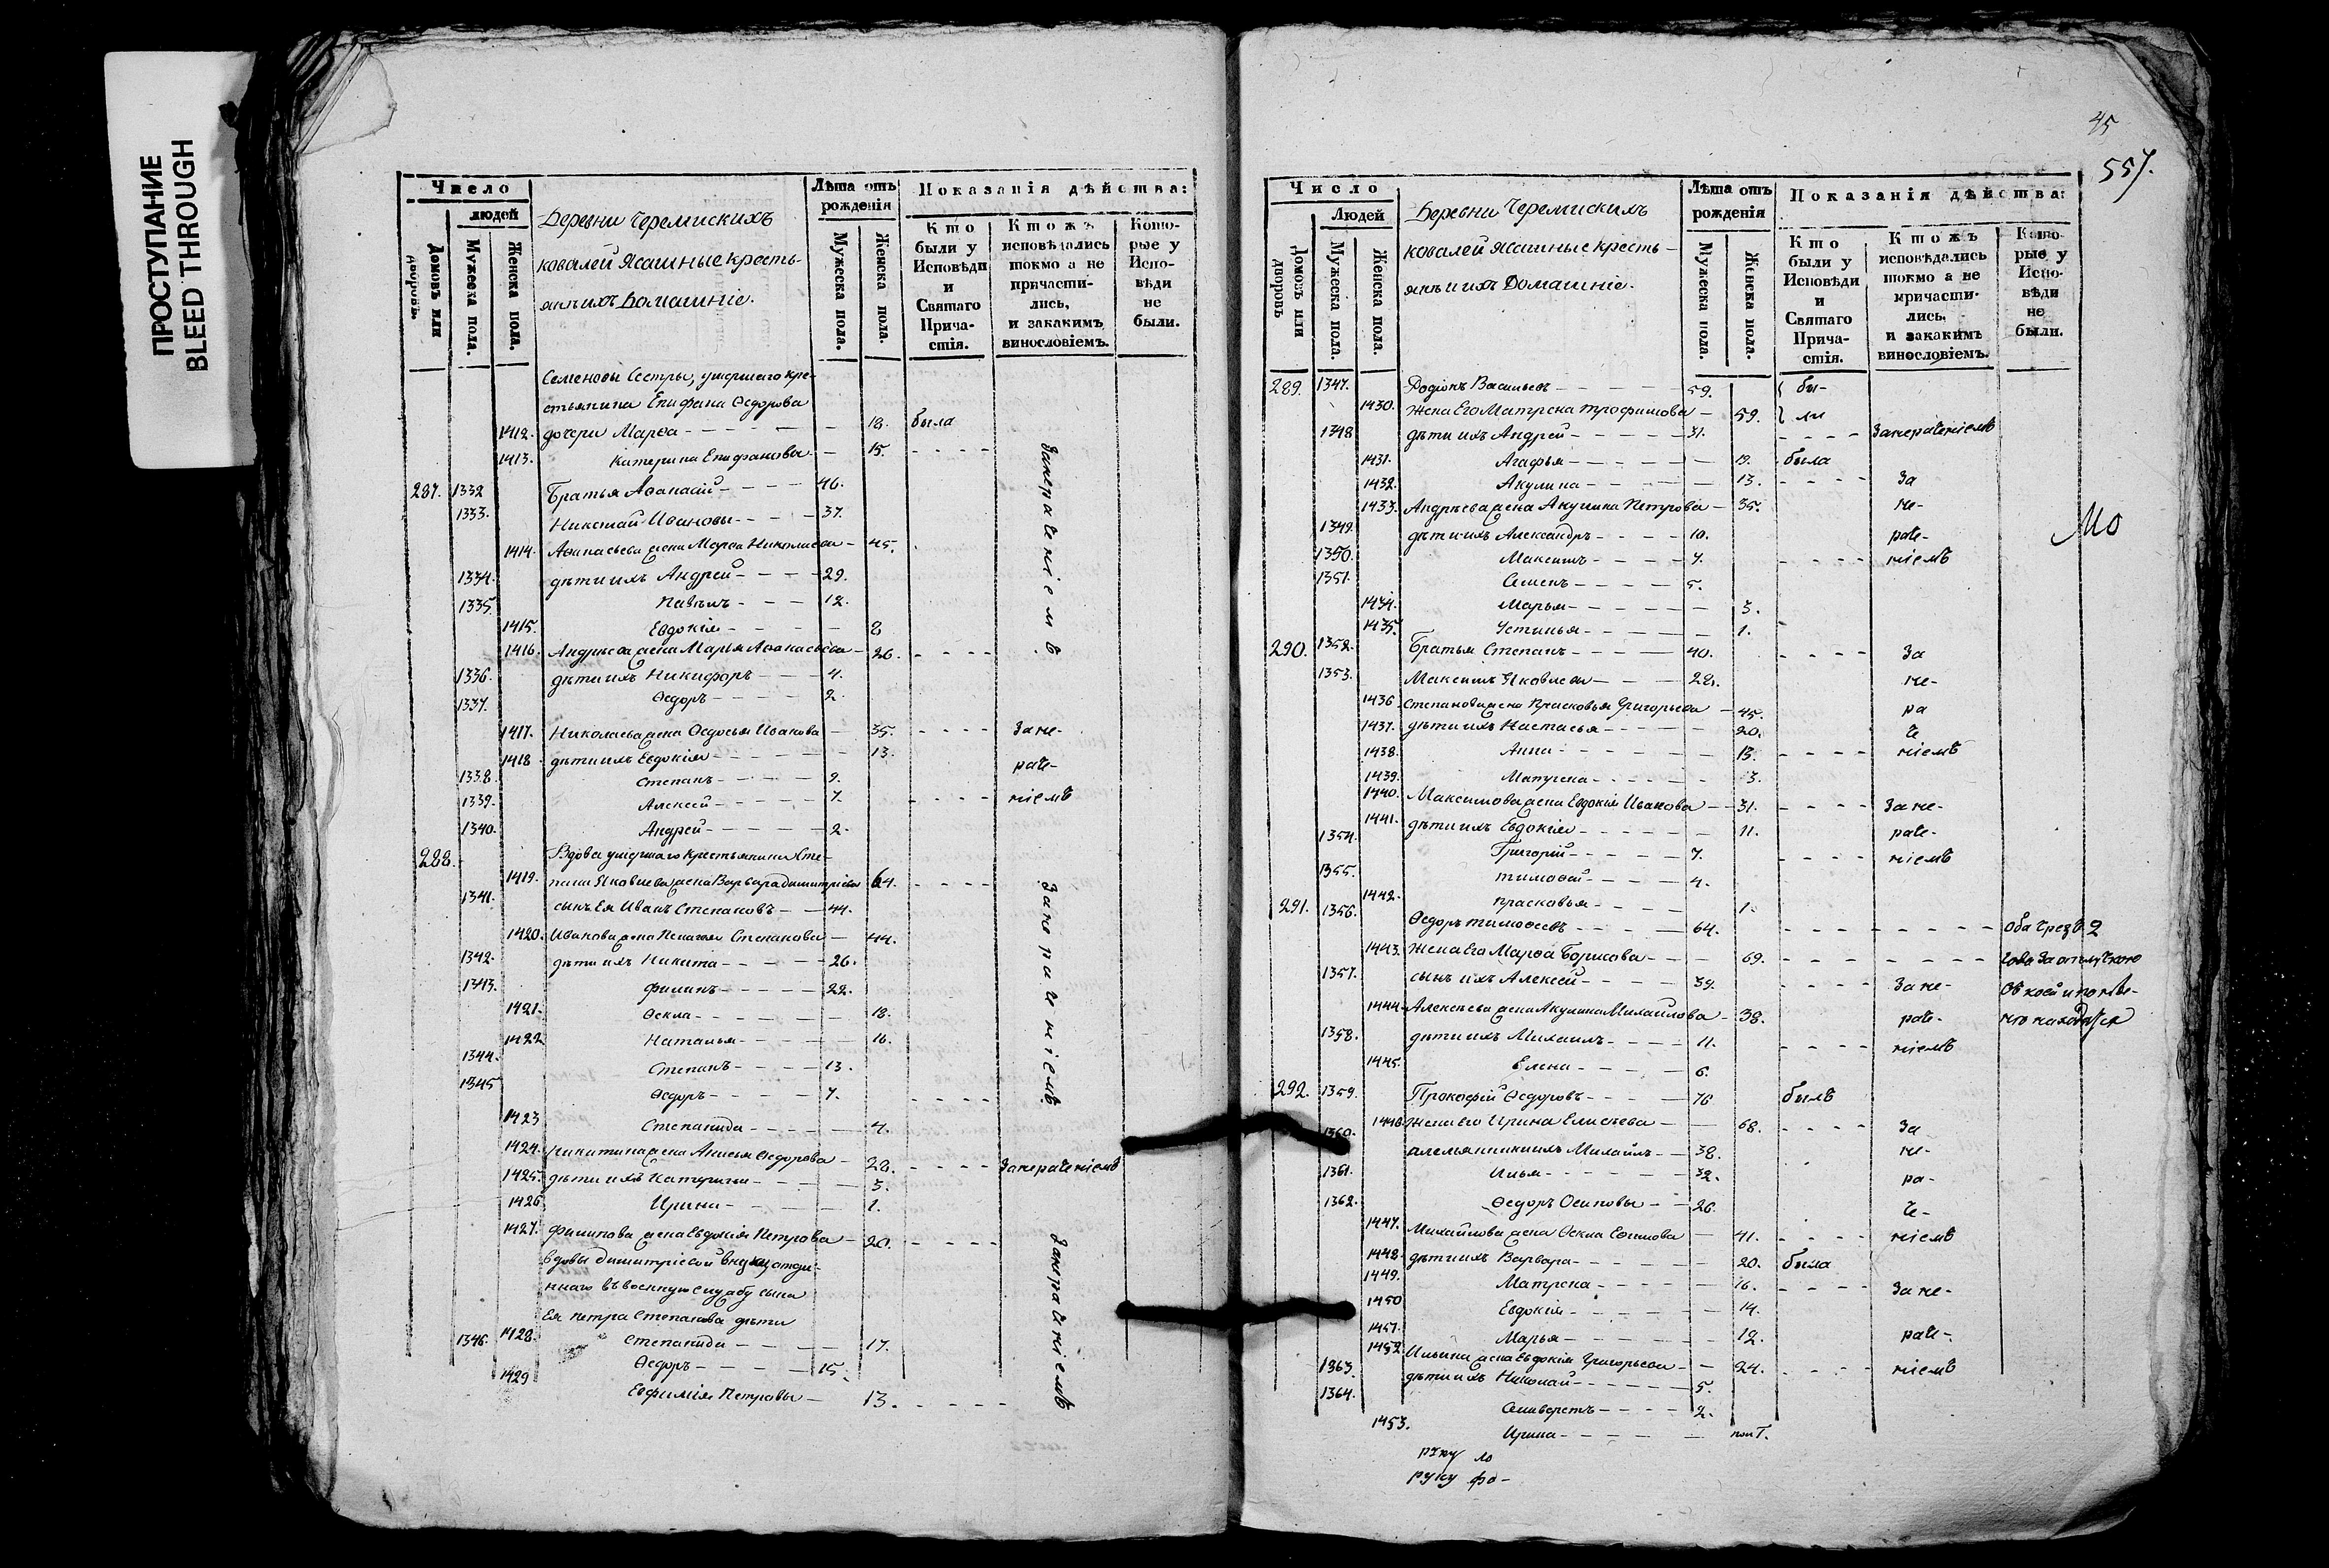 ПРОСТУПАНИЕ
BLEED THROUGH
Число
людей
Домовъ или дворовъ.
Мужеска пола.
Женска пола.
Деревни Черемискихъ
ковалей Ясашные кресть-
янъ ихъ Домашніе.
Лѣта отъ рожденія
Мужеска пола.
Женска пола.
Показанія дѣйства:
Кто были у Исповѣди и Святаго Прича-стія.
Ктожъ исповѣдались токмо а не причасти-лись, и закакимъ винословіемъ.
Кото-рые у Испо-вѣди не были.
Семеновы Сестры, умершаго кре-
стьянина Епифана Ѳедорова
1412. дочери Марѳа 18. была
1413. Катерина Епифановы 15.
закерасеніемъ
287. 1332 Братья Аѳанасій 46.
1333. Николай Ивановы 37.
1414. Аѳанасьева жена Марѳа Николаева 45.
1334. дѣти ихъ Андрей 29.
1335. 12.
1415. Евдокія 8
1416. Андреева жена Марья Аѳанасьева 26.
1336. дѣти ихъ Никифоръ 4.
1337. Ѳедоръ 2.
1417. Николаева жена Ѳедосья Иванова 35. Заке-
1418. дѣти ихъ Евдокія 13. расе-
1338. Степанъ 9.
1339. Алексей 7. ніемъ
1340. Андрей 2.
288. Вдова умершаго крестьянина Сте-
1419. пана Яковлева жена Варвара Димитріева 64.
1341. сынъ Ея Иванъ Степановъ 44.
1420. Иванова жена Пелагея Степанова 44.
1342. дѣти ихъ Никита 26.
1343. Филипъ 22.
1421. Ѳекла 18.
1422. Наталья 16.
1344. Степанъ 13.
1345 Ѳедоръ 7.
1423 Степанида 4.
1424. Никитина жена Анисья Ѳедорова 28.
1425. дѣти ихъ Катерина 3.
1426 Ирина 1.
1427. Филипова жена Евдокія Петрова 20.
вдовы Димитріевой внуки отда-
ннаго въ военную службу сына
Ея Петра Степанова дѣти
1428. Степанида 17.
1346. Ѳедоръ 15.
1429 Евфимія Петровы 13.
45
557.
Число
Людей
Домовъ или дворовъ
Мужеска пола.
Женска пола.
Деревни Черемискихъ
ковалей Ясашные кресть-
янъ и ихъ Домашніе.
Лѣта отъ рожденія
Мужеска пола.
Женска пола.
Показанія дѣйства:
Кто были у Исповѣди и Святаго Прича-стія.
Ктожъ исповѣдались токмо а не причасти-лись, и закакимъ винословіемъ.
Кото-рые у Испо-вѣди не были.
289. 1347. Родіонъ Васильевъ 59. бы-
1430. Жена Его Матрена Трофимова 59. ли
1348 дѣти ихъ Андрей 31.
1431. Агафья 19. была
1432. Акулина 13. За
1433. Андреева жена Акулина Петрова 35. ке-
1349. дѣти ихъ Александръ 10. расе-
1350. Максимъ 7. ніемъ
1351. Семенъ 5.
1434. Марья 3.
1435. Устинья 1.
290. 1352. Братья Степанъ 40. За
1353. Максимъ Яковлевы 28. ке-
1436. Степанова жена Прасковья Григорьева 45. ра
1437. дѣти ихъ Настасья 20.
1438. Анна 13. ніемъ
1439. Матрена 3.
1440. Максимова жена Евдокія Иванова 31. Заке-
1441. дѣти ихъ Евдокія 11. расе-
1354. Григорій 7. ніемъ
1355. Тимофей 4.
1442. Прасковья 1.
291. 1356. Ѳедоръ Тимоѳеевъ 64. Оба Чрезъ 2
1443. Жена Его Марѳа Борисова 69. года За отлучкою
1357. сынъ ихъ Алексей 39. Заке-
1444. Алексеева жена Акулина Михайлова 38. расе- находятся
1358. дѣти ихъ Михаилъ 11. ніемъ
1445. Елена 6.
МО
292. 1359. Прокофій Ѳедоровъ 76 былъ
1446. Жена Его Ирина Елисеева 68. За
1360. Михайлъ 38. ке-
1361. Илья 32. ра-
1362. Ѳедоръ Осиповы 26.
1447. Михайлова жена Ѳекла Ефимова 41. ніемъ
1448. дѣти ихъ Варвара 20. была
1449. Матрена 16. Заке-
1450 Евдокія 14.
1451. Марья 12. расе-
1452. Ильина жена Евдокія Григорьева 24. ніемъ
1363. дѣти ихъ Николай 5.
1364. Селиверстъ 2.
1453. Ирина полг.
руку
руку